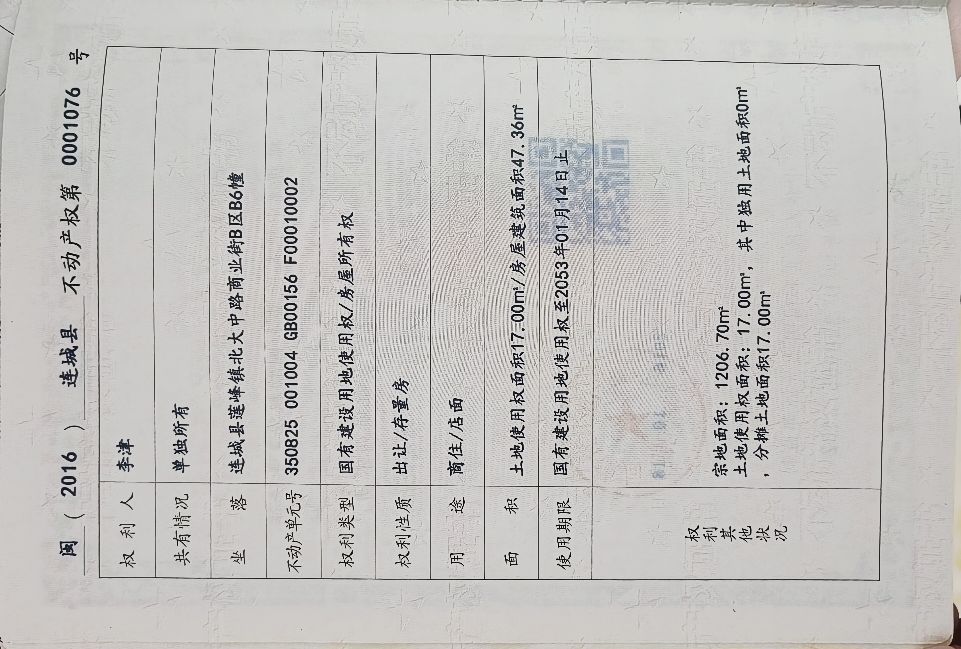 闽（ 2016 ） 连城县 不动产权第 0001076 号
权利人 李津
共有情况 单独所有
坐落 连城县莲峰镇北大中路商业街B区B6幢
不动产单元号 350825 001004 GB00156 F00010002
权利类型 国有建设用地使用权/房屋所有权
权利性质 出让/存量房
用途 商住/店面
面积 土地使用权面积17.00㎡/房屋建筑面积47.36㎡
使用期限 国有建设用地使用权至2053年01月14日止
权利其他状况
宗地面积：1206.70㎡
土地使用权面积：17.00㎡，其中独用土地面积0㎡
，分摊土地面积17.00㎡